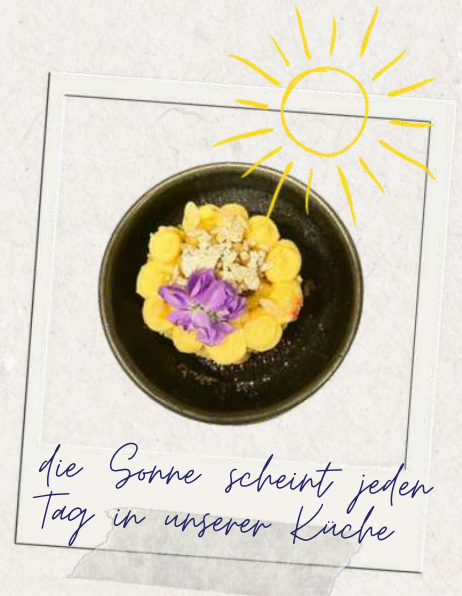 die Sonne scheint jeden
Tag in unserer Küche